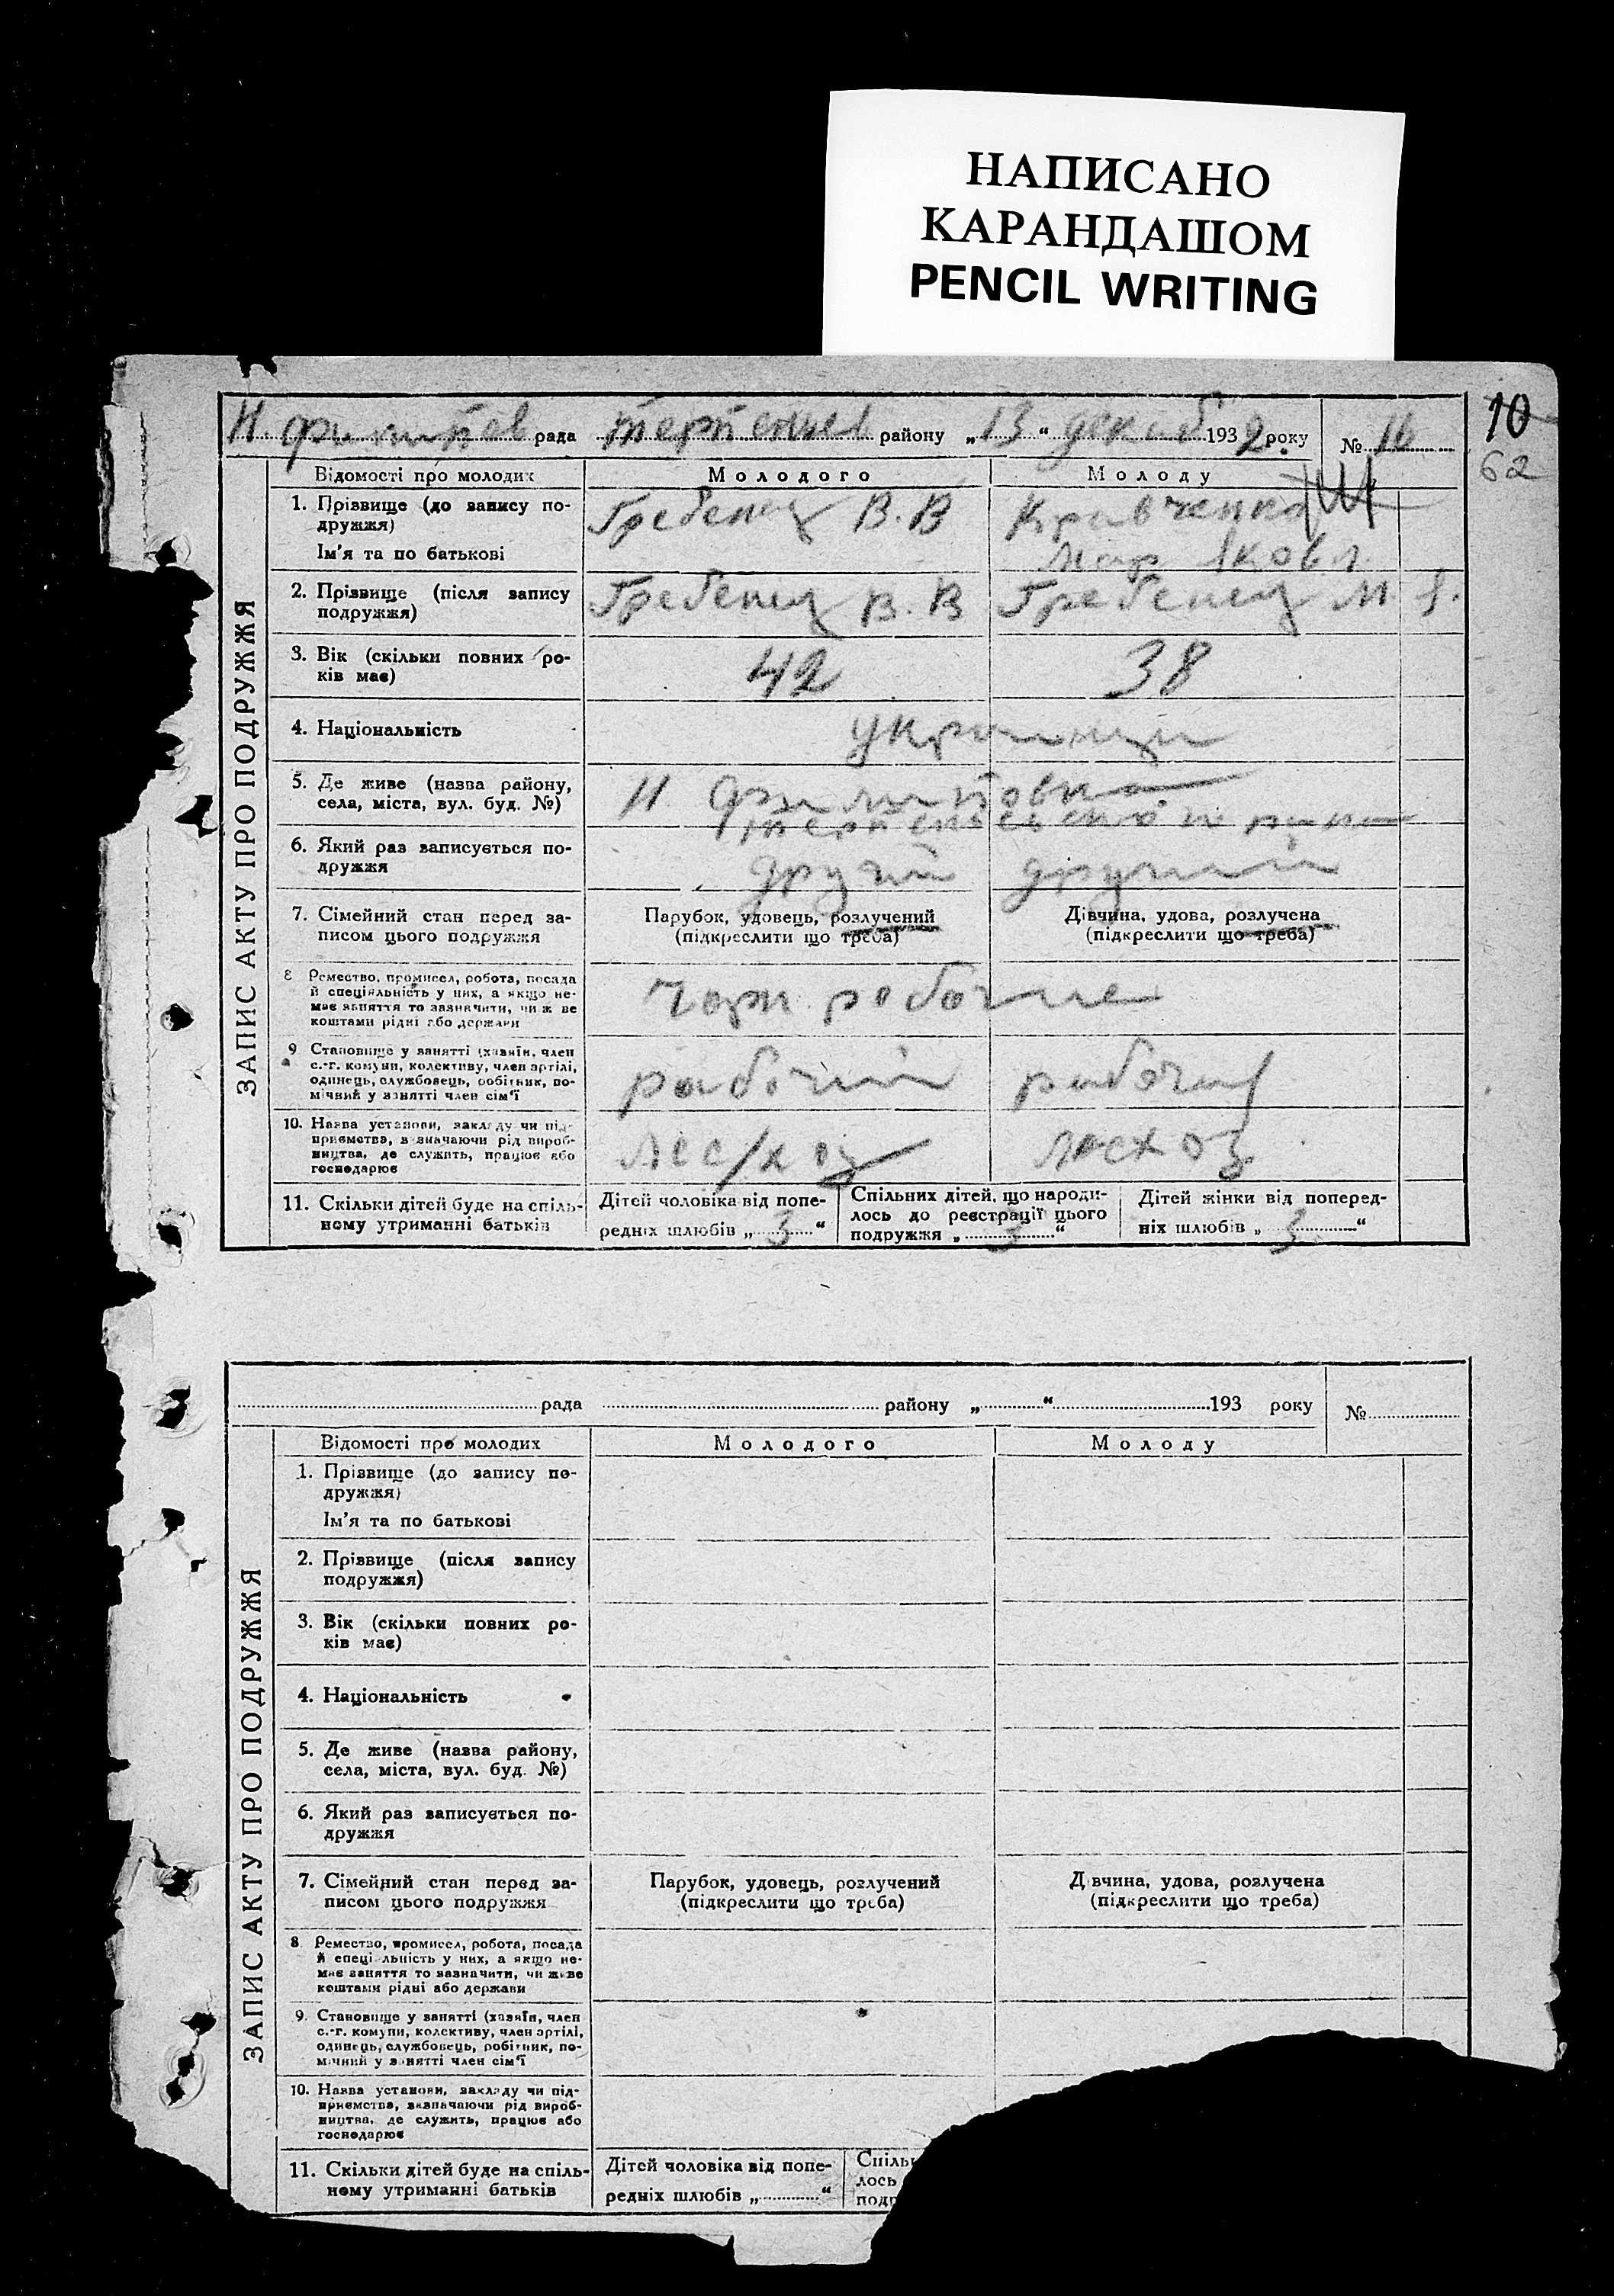 НАПИСАНО
КАРАНДАШОМ
PENCIL WRITING
10
62
рада района „13“ декаб 1932 року № 16
Відомості про молодих Молодого Молоду
ЗАПИС АКТУ ПРО ПОДРУЖЖЯ
1. Прізвище (до запису по-
дружжя)
Ім'я та по батькові
Гребенец В. В
Кравченко
Мар Яковл.
2. Прізвище (після запису
подружжя)
Гребенец В. В
Гребенец М. Я.
3. Вік (скільки повних ро-
ків має)
42
38
4. Національність
українци
5. Де живе (назва району,
села, міста, вул. буд. №)
Н
6. Який раз записується по-
дружжя
другий
другий
7. Сімейний стан перед за-
писом цього подружжя
Парубок, удовець, розлучений
(підкреслити що треба)
Дівчина, удова, розлучена
(підкреслити що треба)
8 Ремество, промисел, робота, посада
й спеціяльність у них, а якщо не-
має заняття то зазначити, чи живе
коштами рідні або держави
Черн. рабочие
9 Становище у занятті (хазяїн, член
с.-г. комуни, колективу, член артілі,
одинець, службовець, робітник, по-
мічний у занятті член сім'ї
рабочий
рабочая
10. Назва установи, закладу чи під-
приємства, визначаючи рід вироб-
ництва, де служить, працює або
господарює
Лес/хоз
лесхоз
11. Скільки дітей буде на спіль-
ному утриманні батьків
Дітей чоловіка від попе-
редніх шлюбів „ 3 “
Спільних дітей, що народи-
лось до реєстрації цього
подружжя „ 3 “
Дітей жінки від поперед-
ніх шлюбів „ 3 “
рада району „ “ 193 року №
Відомості про молодих Молодого Молоду
ЗАПИС АКТУ ПРО ПОДРУЖЖЯ
1. Прізвище (до запису по-
дружжя)
Ім'я та по батькові
2. Прізвище (після запису
подружжя)
3. Вік (скільки повних ро-
ків має)
4. Національність
5. Де живе (назва району,
села, міста, вул. буд. №)
6. Який раз записується по-
дружжя
7. Сімейний стан перед за-
писом цього подружжя
Парубок, удовець, розлучений
(підкреслити що треба)
Дівчина, удова, розлучена
(підкреслити що треба)
8 Ремество, промисел, робота, посада
й спеціяльність у них, а якщо не-
має заняття то зазначити, чи живе
коштами рідні або держави
9. Становище у занятті (хазяїн, член
с.-г. комуни, колективу, член артілі,
одинець, службовець, робітник, по-
мічний у занятті член сім'ї
10. Назва установи, закладу чи під-
приємства, визначаючи рід вироб-
ництва, де служить, працює або
господарює
11. Скільки дітей буде на спіль-
ному утриманні батьків
Дітей чоловіка від попе-
редніх шлюбів „ “
Спільн
лось
подр